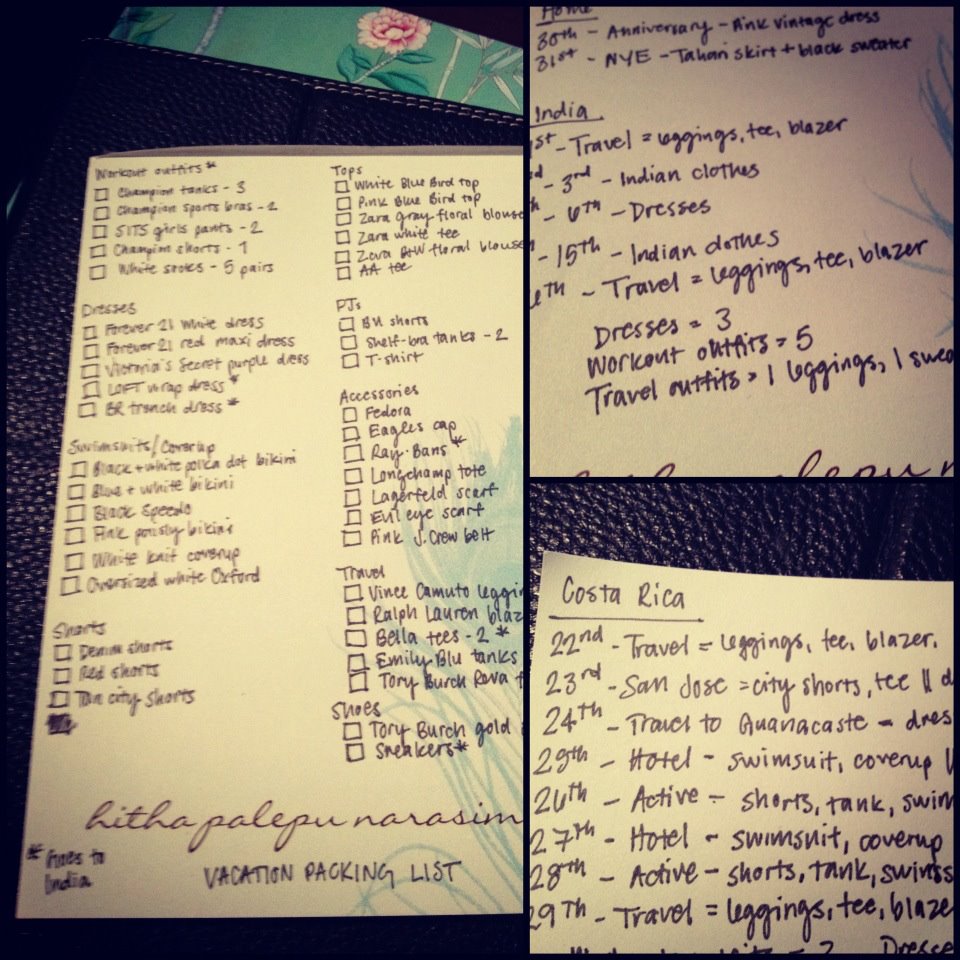 Workout outfits*
Champion tanks - 3
Champion sports bras - 2
SITS girls pants - 2
Champion shorts - 1
White socks - 5 pairs
Dresses
Forever 21 white dress
Forever 21 red maxi dress
Victoria's Secret purple dress
LOFT wrap dress*
BR trench dress*
Swimsuits/Coverup
Black + white polka dot bikini
Blue + white bikini
Black Speedo
Pink paisly bikini
White knit coverup
Oversized white Oxford
Shorts
Denim shorts
Red shorts
Tan city shorts
Tops
White Blue Bird top
Pink Blue Bird top
Zara gray floral blouse
Zara white tee
Zara B+W floral blouse
AA tee
PJs
BH shorts
Shelf-bra tanks - 2
T-shirt
Accessories
Fedora
Eagles cap
Ray-Bans*
Longchamp tote
Lagerfeld scarf
Evil eye scarf
Pink J.Crew belt
Travel
Vince Camuto leggin
Ralph Lauren blaz
Bella tees - 2 *
Emily Blu tanks
Tory Burch Reva f
Shoes
Tory Burch gold
Sneakers*
hitha palepu narasim
* Goes to
India
VACATION PACKING LIST
Home
30th - Anniversary - Pink vintage dress
31st - NYE - Tahari skirt + black sweater
India
st - Travel = leggings, tee, blazer
d - 3rd - Indian clothes
h - 6th - Dresses
- 15th - Indian clothes
th - Travel = leggings, tee, blazer
Dresses = 3
Workout outfits = 5
Travel outfits > 1 leggings, 1 swea
palepu n
Costa Rica
22nd - Travel = leggings, tee, blazer.
23rd - San Jose = city shorts, tee || d
24th - Travel to Guanacaste - dres
25th - Hotel - swimsuit, coverup
26th - Active - shorts, tank, swim
27th - Hotel - swimsuit, coverup
28th - Active - shorts, tank, swims
29th - Travel = leggings, tee, blaze